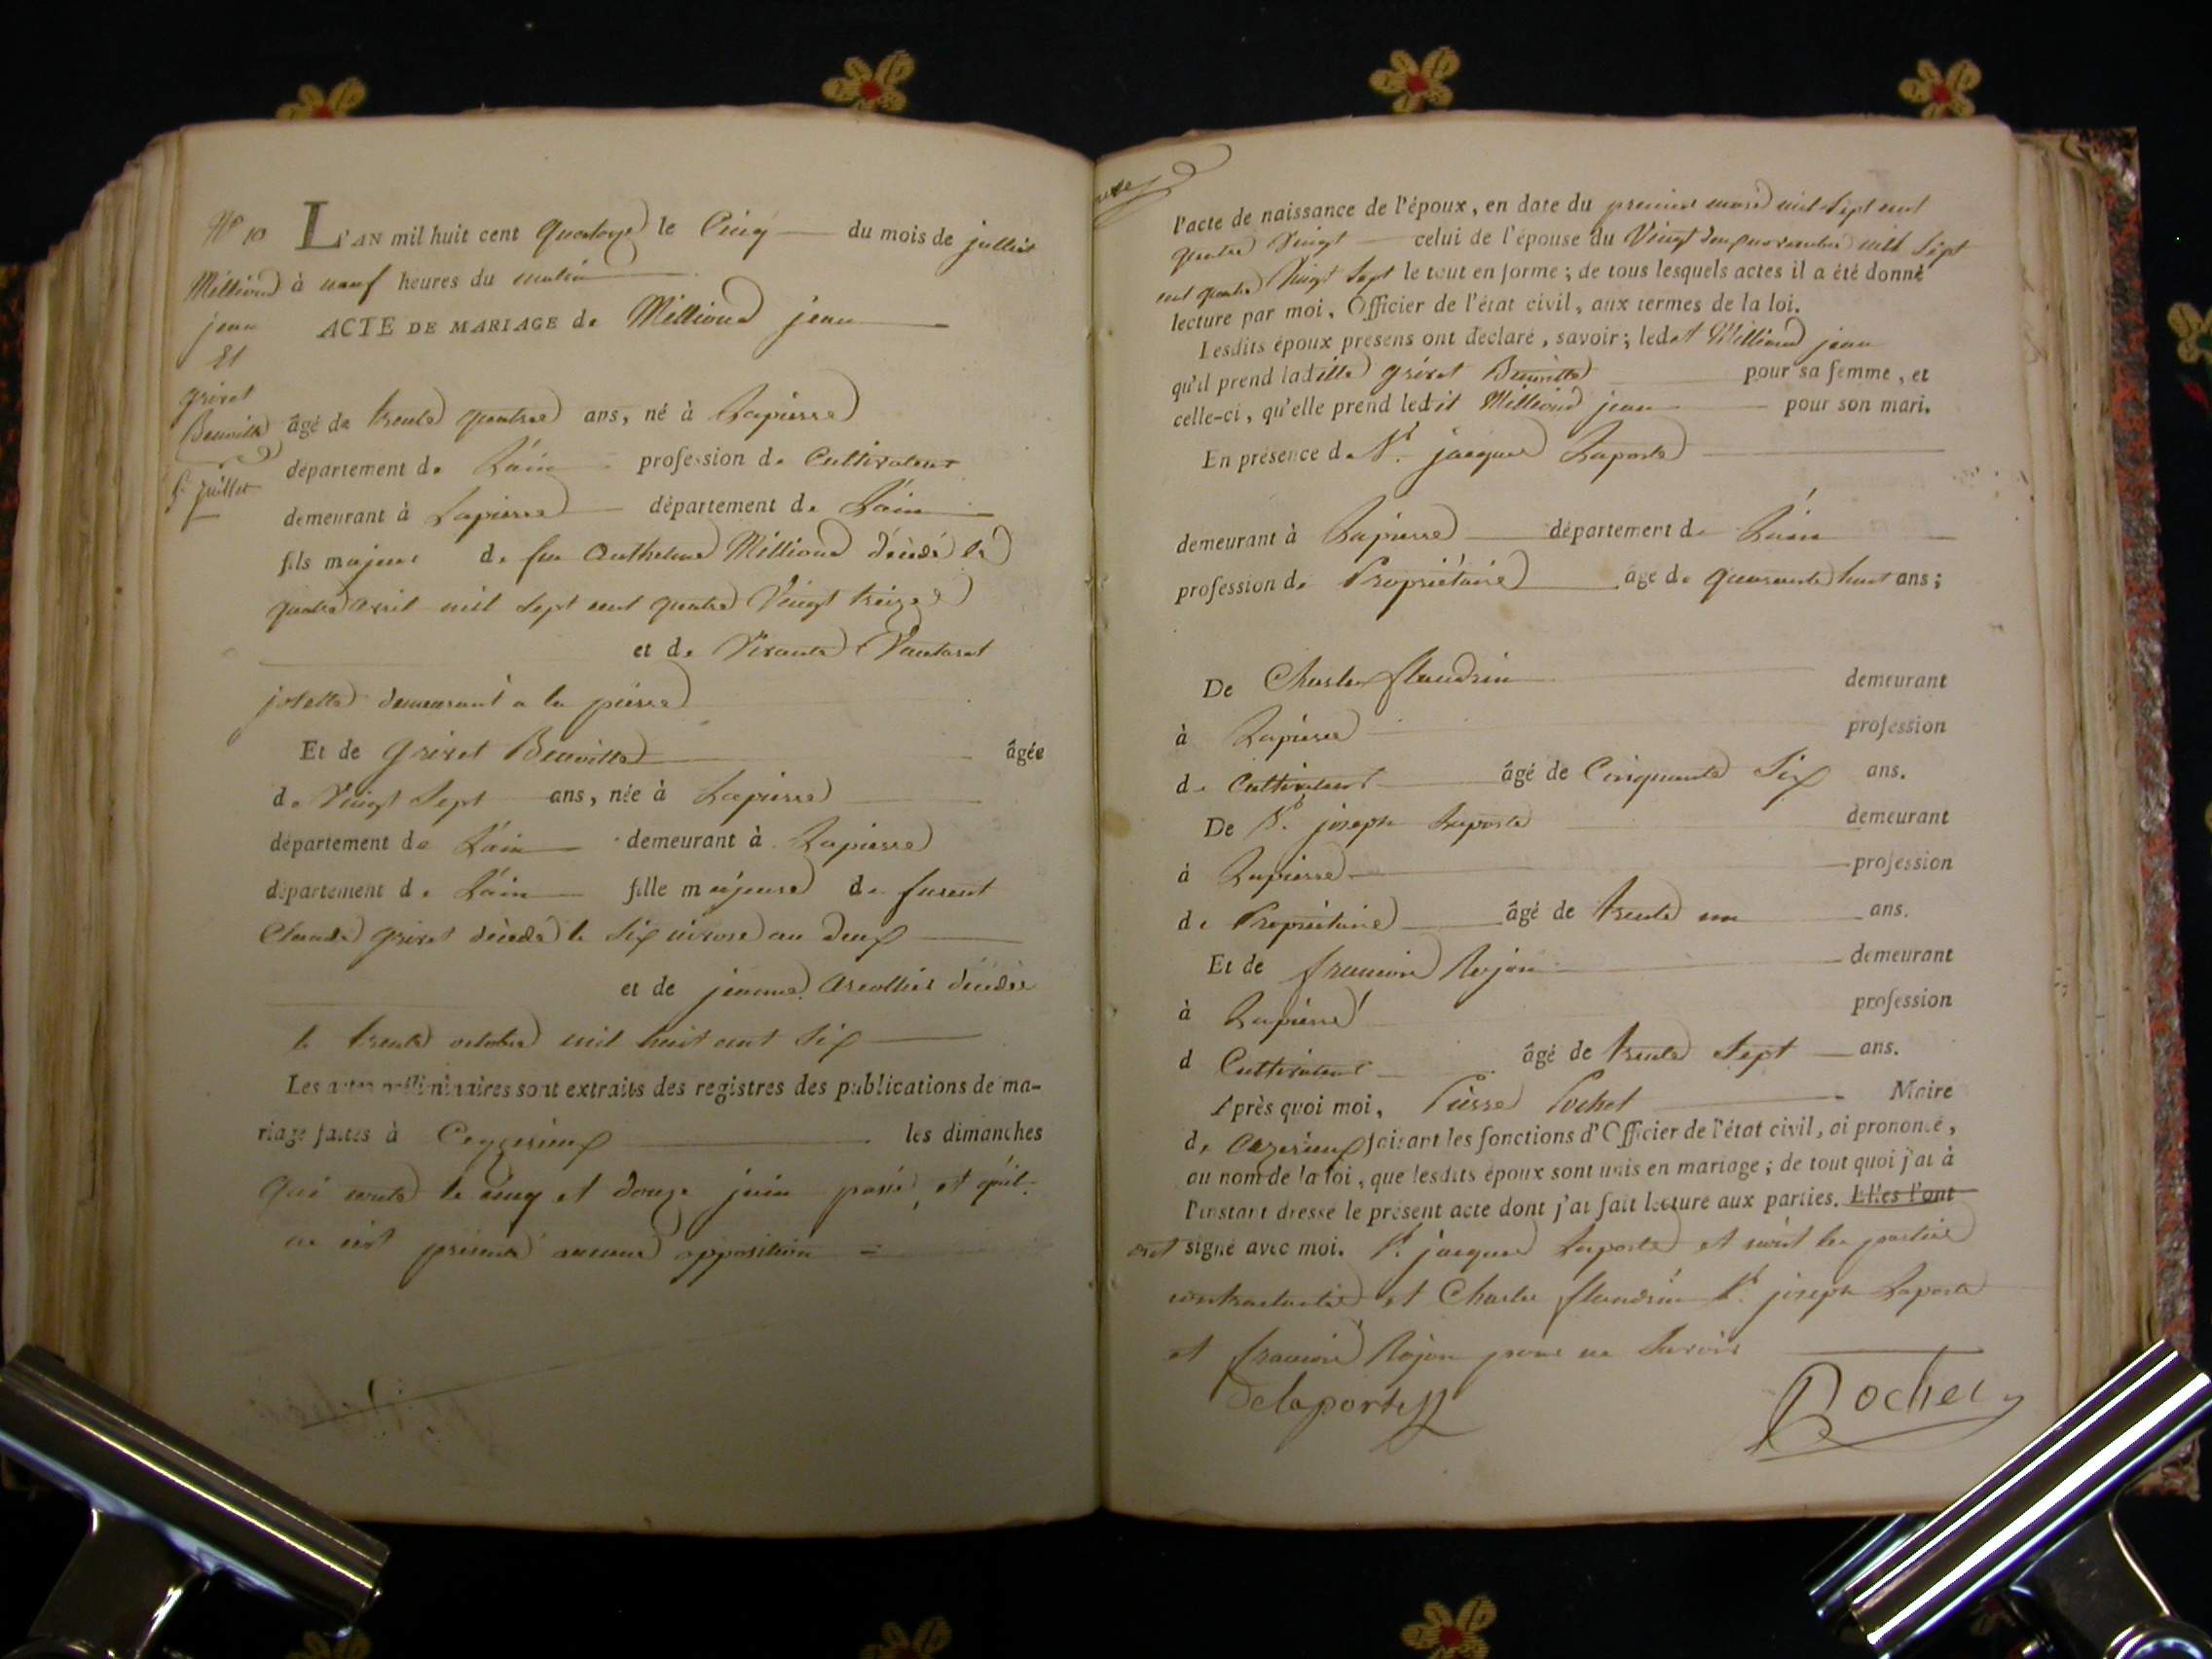 N° 10
Milliond
jean
Et
grivet
Benoitte
5 juillet
L'AN mil huit cent quatorze le Cinq du mois de julliet
à neuf heures du matin
ACTE DE MARIAGE de Milliond jean
âgé de trente quatre ans, né à Lapierre
département de L'ain profession de Cultivateur
demeurant à Lapierre département de L'ain
fils majeur de feu Anthelme Milliond décédé le
quatre avril mil sept cent quatre Vingt treize
et de Pantaret
josette demeurant a la pierre
Et de grivet Benoitte âgée
de Vingt Sept ans, née à Lapierre
département de L'ain demeurant à Lapierre
département de L'ain fille majeure de furent
Claude grivet décédé le Six nivose an deux
et de jeanne décédée
le trente octobre mil huit cent Six
Les actes préliminaires sont extraits des registres des publications de ma-
riage faites à Ceyzerieux les dimanches
le cinq et douze juin passé, et qu'il
ne s'est présenté aucune opposition
l'acte de naissance de l'époux, en date du premier mars mil sept cent
quatre Vingt celui de l'épouse du Vingt novembre mil Sept
cent quatre Vingt Sept le tout en forme ; de tous lesquels actes il a été donné
lecture par moi, Officier de l'état civil, aux termes de la loi.
Lesdits époux présens ont déclaré, savoir ; ledit Milliond jean
qu'il prend ladille grivet Benoitte pour sa femme, et
celle-ci, qu'elle prend ledit Milliond jean pour son mari.
En présence de Sr. jacques Laporte
demeurant à Lapierre département de L'ain
profession de Propriétaire âgé de quarante huit ans ;
De Charles flandrin demeurant
à Lapierre profession
de Cultivateur âgé de Cinquante Six ans.
De Sr. joseph Laporte demeurant
à Lapierre profession
de Propriétaire âgé de trente un ans.
Et de francois Rojon demeurant
à Lapierre profession
d Cultivateur âgé de trente Sept ans.
Après quoi moi, Pierre Pochet Maire
de Cezerieux faisant les fonctions d'Officier de l'état civil, ai prononcé,
au nom de la loi, que lesdits époux sont unis en mariage ; de tout quoi j'ai à
l'instant dressé le présent acte dont j'ai fait lecture aux parties. Elles l'ont
ont signé avec moi. Sr. jacques Laporte et non les parties
contractantes et Charles flandrin Sr. joseph Laporte
et francois Rojon pour ne Savoir
Delaporte
Pochet